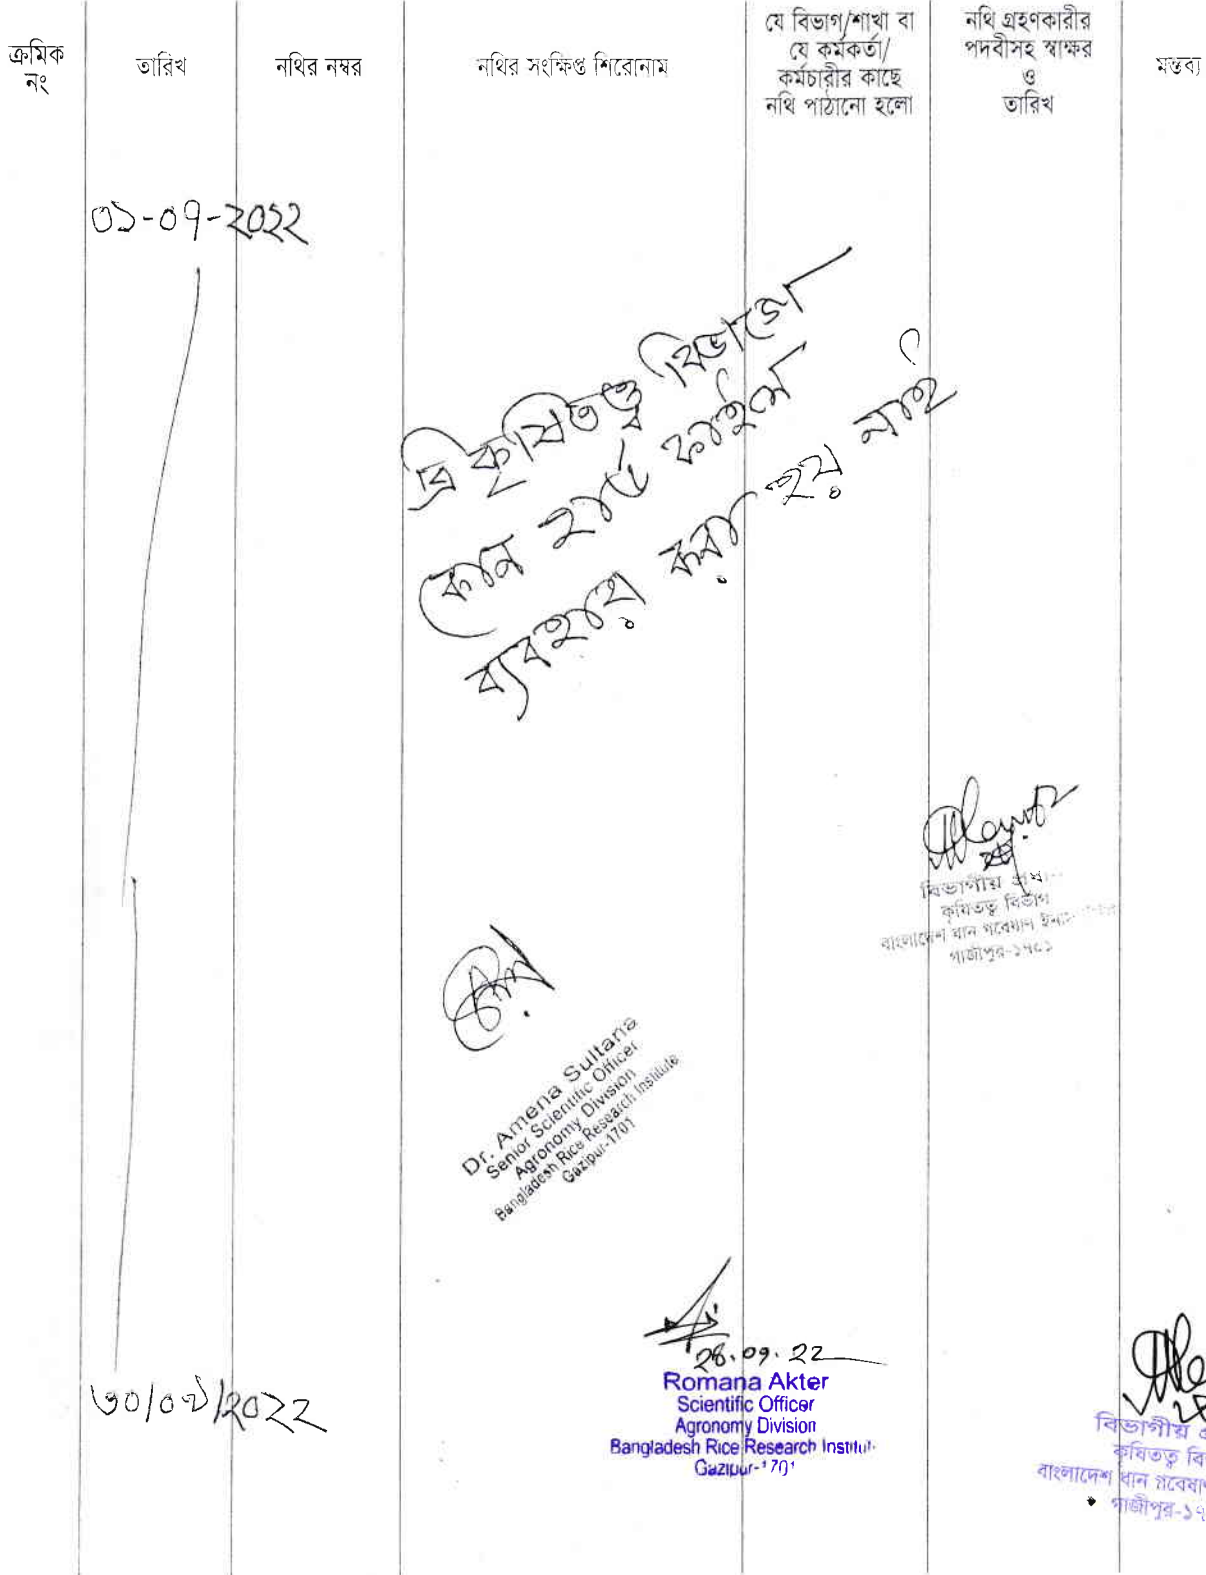 ক্রমিক
নং
তারিখ
নথির নম্বর
নথির সংক্ষিপ্ত শিরোনাম
যে বিভাগ/শাখা বা
যে কর্মকর্তা/
কর্মচারীর কাছে
নথি পাঠানো হলো
নথি গ্রহণকারীর
পদবীসহ স্বাক্ষর
ও
তারিখ
মন্তব্য
০১-০৭-২০২২
ব্রি কৃষিতত্ত্ব বিভাগে
কোন হার্ড ফাইল
ব্যবহার করা হয় নাই
বিভাগীয়
কৃষিতত্ত্ব বিভাগ
বাংলাদেশ ধান গবেষণা
গাজীপুর-১৭০১
Dr. Amena Sultana
Senior Scientific Officer
Agronomy Division
Bangladesh Rice Research Institute
Gazipur-1701
28.09.22
Romana Akter
Scientific Officer
Agronomy Division
Bangladesh Rice Research Institut
Gazipur-1701
৩০/০৯/২০২২
বিভাগীয়
কৃষিতত্ত্ব বি
বাংলাদেশ ধান গবেষণ
গাজীপুর-১৭